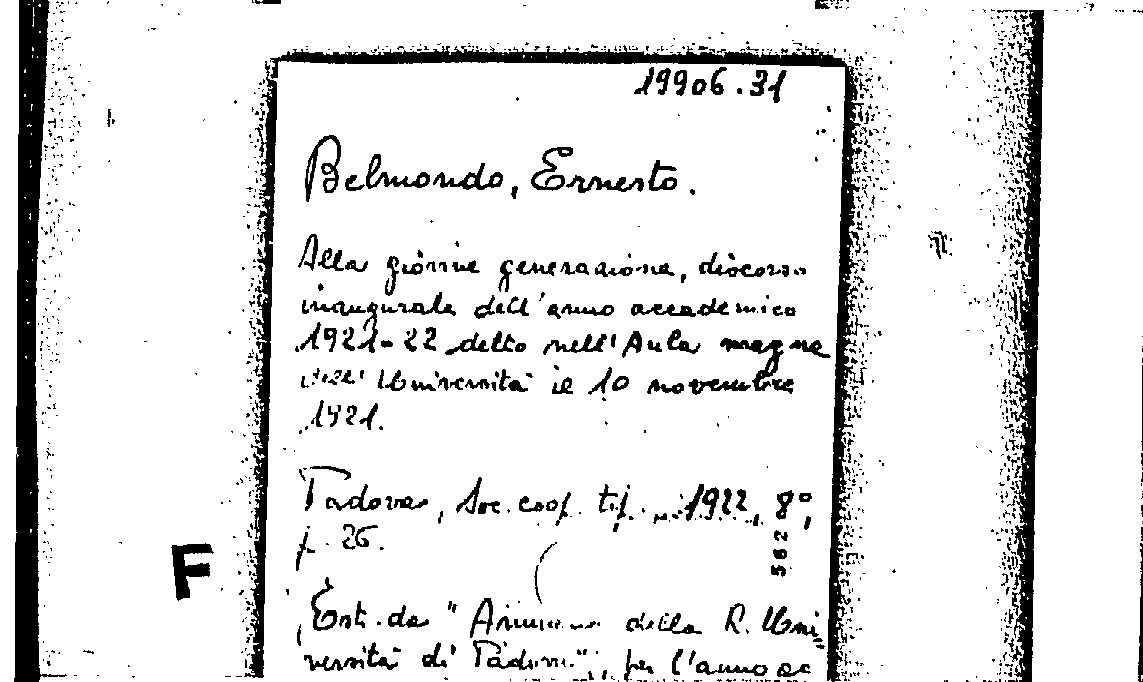 19906.31
Belmondo, Ernesto.
Alla giovine generazione, discorso
inaugurale dell'anno accademico
1921-22 detto nell'Aula magna
dell'Università il 10 novembre
1921.
Padova, Soc. coop. tip. 1922, 8°,
p. 26.
562
F
Estr. da "Annuario della R. Uni
versità di Padova", per l'anno ac